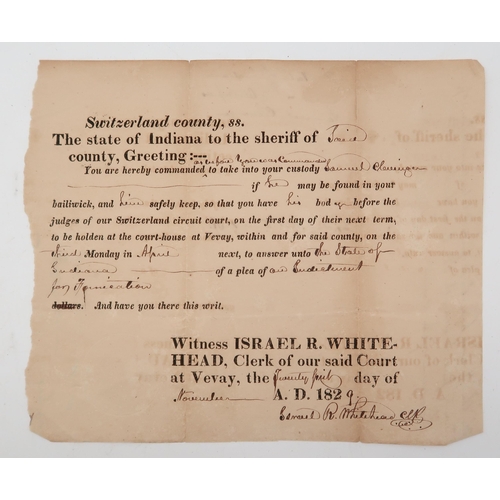 Switzerland county, ss.
The state of Indiana to the sheriff of said
county, Greeting:---
as before you was Commanded
You are hereby commanded to take into your custody Samuel
if he may be found in your
bailiwick, and him safely keep, so that you have his body before the
judges of our Switzerland circuit court, on the first day of their next term,
to be holden at the court-house at Vevay, within and for said county, on the
third Monday in April next, to answer unto the State of
Indiana of a plea of an Indictment
for Fornication
dollars. And have you there this writ.
Witness ISRAEL R. WHITE-
HEAD, Clerk of our said Court
at Vevay, the Twenty first day of
November A. D. 1829.
Israel R. Whitehead Clk